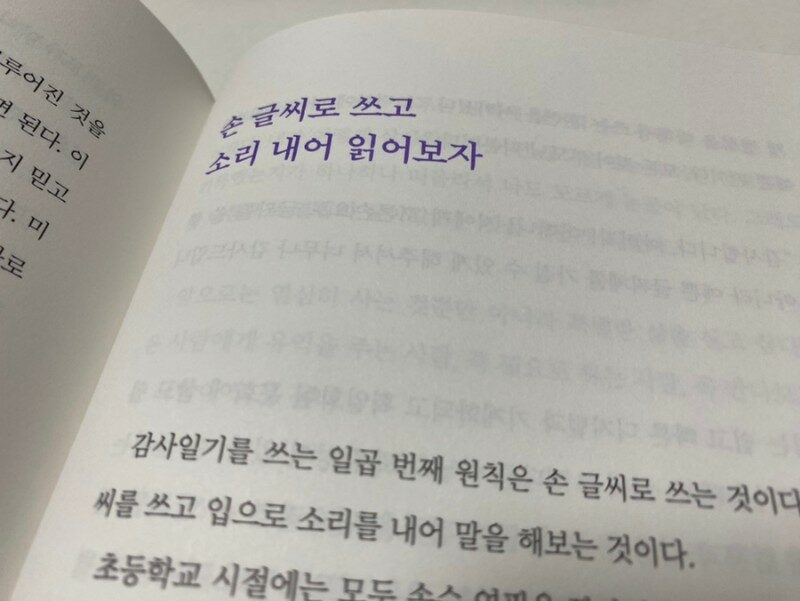 루어진 것을
면 된다. 이
지 믿고
다. 미
로
손 글씨로 쓰고
소리 내어 읽어보자
감사일기를 쓰는 일곱 번째 원칙은 손 글씨로 쓰는 것이다
씨를 쓰고 입으로 소리를 내어 말을 해보는 것이다.
초등학교 시절에는 모두 손수 연필을